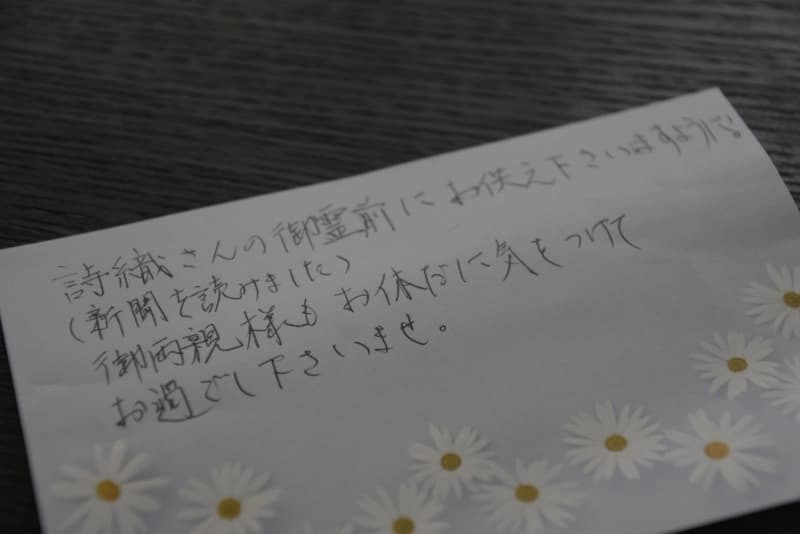 詩織さんの御霊前にお供え下さいますように!
(新聞を読みました)
御両親様もお体だに気をつけて
お過ごし下さいませ。